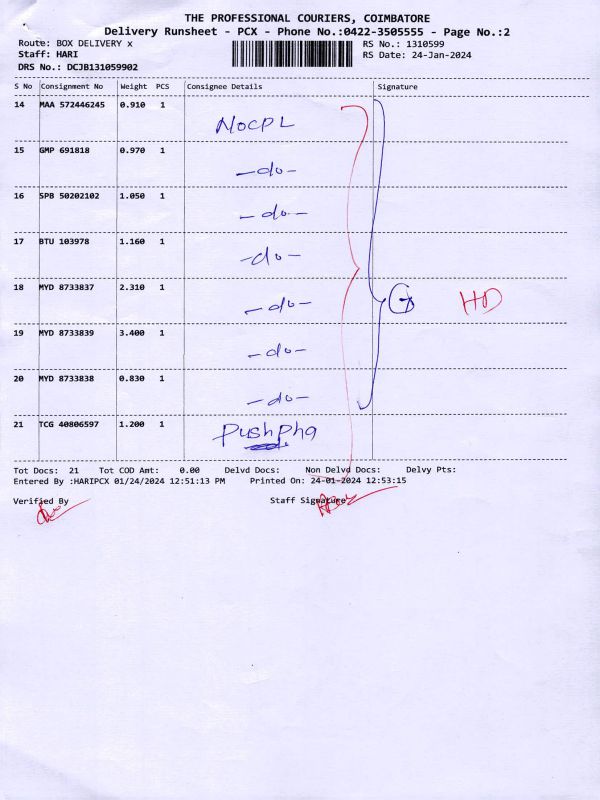 THE PROFESSIONAL COURIERS, COIMBATORE
Delivery Runsheet - PCX - Phone No.:0422-3505555 - Page No.:2
Route: BOX DELIVERY x
RS No.: 1310599
Staff: HARI
RS Date: 24-Jan-2024
DRS No.: DCJB131059902
S No Consignment No Weight PCS Consignee Details Signature
14 MAA 572446245 0.910 1 NOCPL
15 GMP 691818 0.970 1 -do-
16 SPB 50202102 1.050 1 -do-
17 BTU 103978 1.160 1 -do-
18 MYD 8733837 2.310 1 -do- 7 HD
19 MYD 8733839 3.400 1 -do-
20 MYD 8733838 0.830 1 -do-
21 TCG 40806597 1.200 1 Pushpha
Tot Docs: 21 Tot COD Amt: 0.00 Delvd Docs: Non Delvd Docs: Delvy Pts:
Entered By :HARIPCX 01/24/2024 12:51:13 PM Printed On: 24-01-2024 12:53:15
Verified By Staff Signature